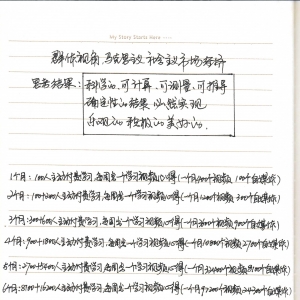 My Story Starts Here
群体视角 马克思议 社会议市场经济
思考结果: 科学的、可计算、可测量、可推导
确定性的结果 必然实现
乐观的 积极的 美好的。
1个月: 100人主动付费学习,每周出一个学习视频心得(一个月400个视频 100个自媒体)
2个月: 100+200人主动付费学习,每周出一个学习视频心得(一个月1200个视频 300个自媒体)
3个月: 300+600人主动付费学习,每周出一个学习视频心得(一个月3600个视频 900个自媒体)
4个月: 900+1800人主动付费学习,每周出一个学习视频心得(一个月10800个视频 2700个自媒体)
5个月: 2700+5400人主动付费学习,每周出一个学习视频心得(一个月32400个视频 8100个自媒体)
6个月: 8100+16200人主动付费学习,每周出一个学习视频心得(一个月97200个视频 24300个自媒体)